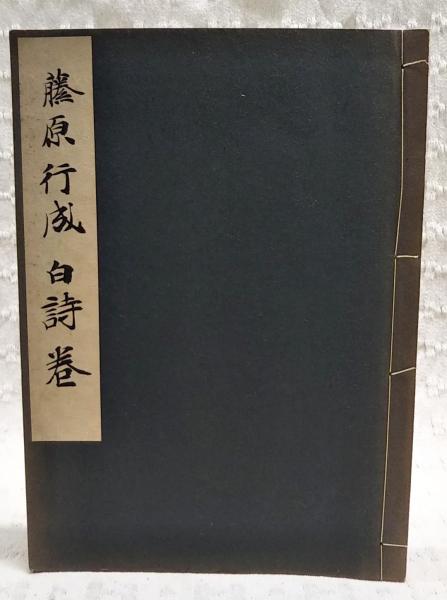 藤原行成白詩巻